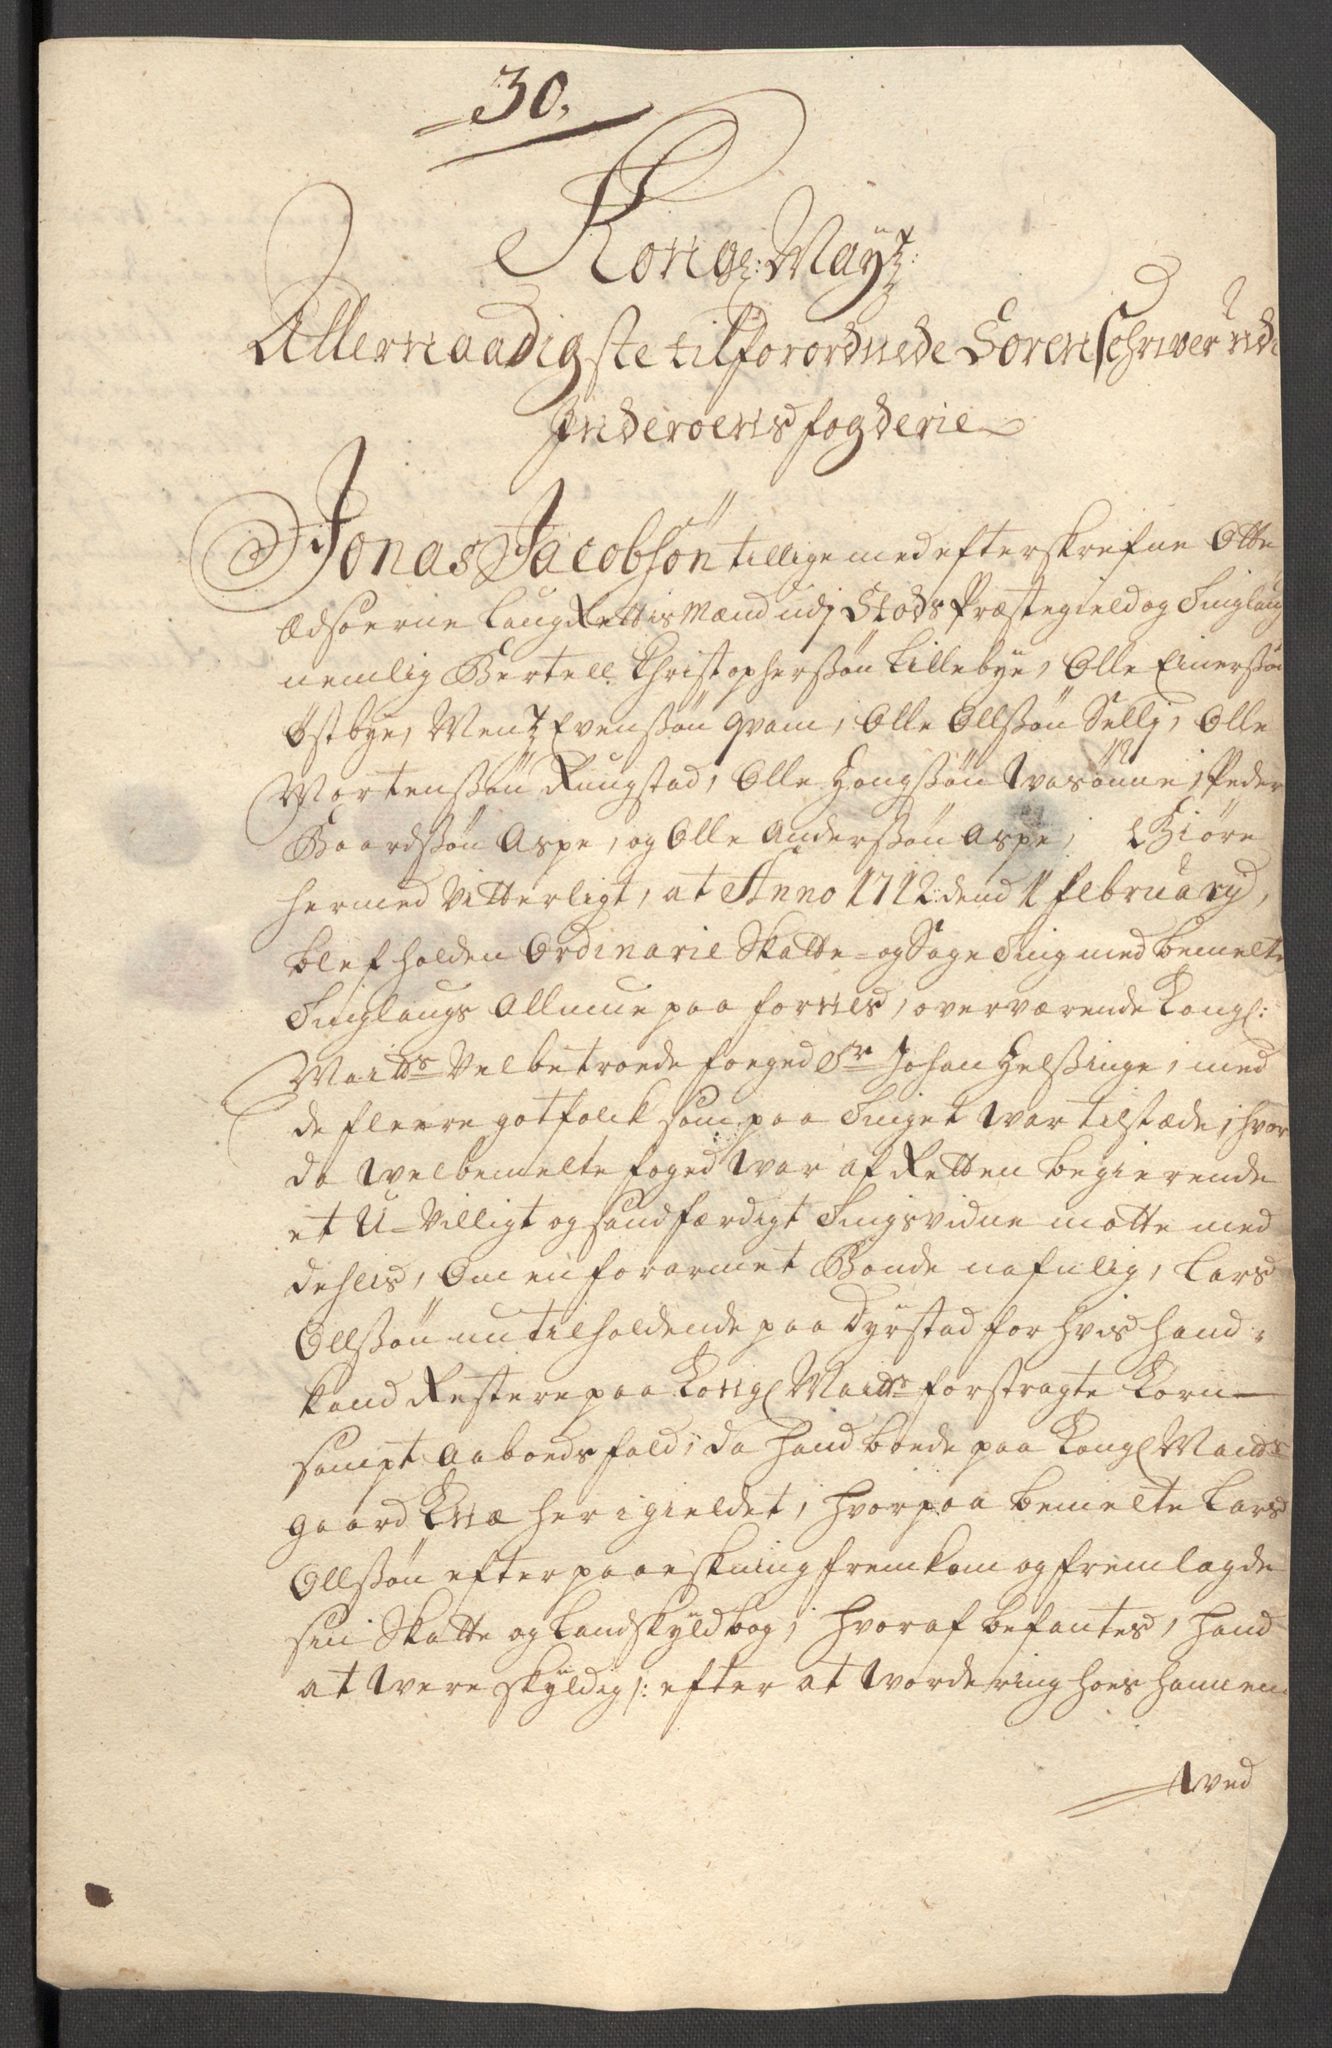 30.
Kongl: Mayts:
Allernaadigste tilforordnede Sorenschriver udi
Inderøens fogderie
Jonas Jacobsøn tillige med efterskrefne Otte
Edsoerne LaugRettis Mænd udj Stods Præstegield og Tinglaug
nemlig Bertell Christophersøn Lillebye, Olle Einersøn
Østbye, Mentz Evensøn Qvam, Olle Ollsøn Sellj, Olle
Mortensøn Rungstad, Olle Hongsøn Wasønne, Peder
Baardsøn Aspe, og Olle Andersøn Aspe, Giøre
hermed Vitterligt, at Anno 1712: dend 1 februarij,
blef holden Ordinarie Skatte- og Sage Ting med bemelte
Tinglaugs Allmue paa fornes, overværende Kongl:
Maitts Velbetroede foeged Sr Johan Helsinge, med
de fleere gotfolck som paa Tinget War tilstæde, hvor
da Welbemelte foged War af Retten begierende
et U-Villigt og sandfærdigt Tingsvidne motte med
dehlis, Om en forarmet Bonde nafnlig, Lars
Ollsøn nu tilholdende paa Dyrstad for hvis hand
kand Restere paa Kongl Maitts forstragte Korn
sampt Aaboeds fald, da hand boede paa Kongl Maitts
gaard Qvæ her i gieldet, hvorpaa bemelte Lars
Ollsøn efter paaeskning fremkom og fremlagde
sin Skatte og Landskyld bog, hvoraf befantes, hand
at Were skyldig /: efter at Wordering hoes hannem
Wed